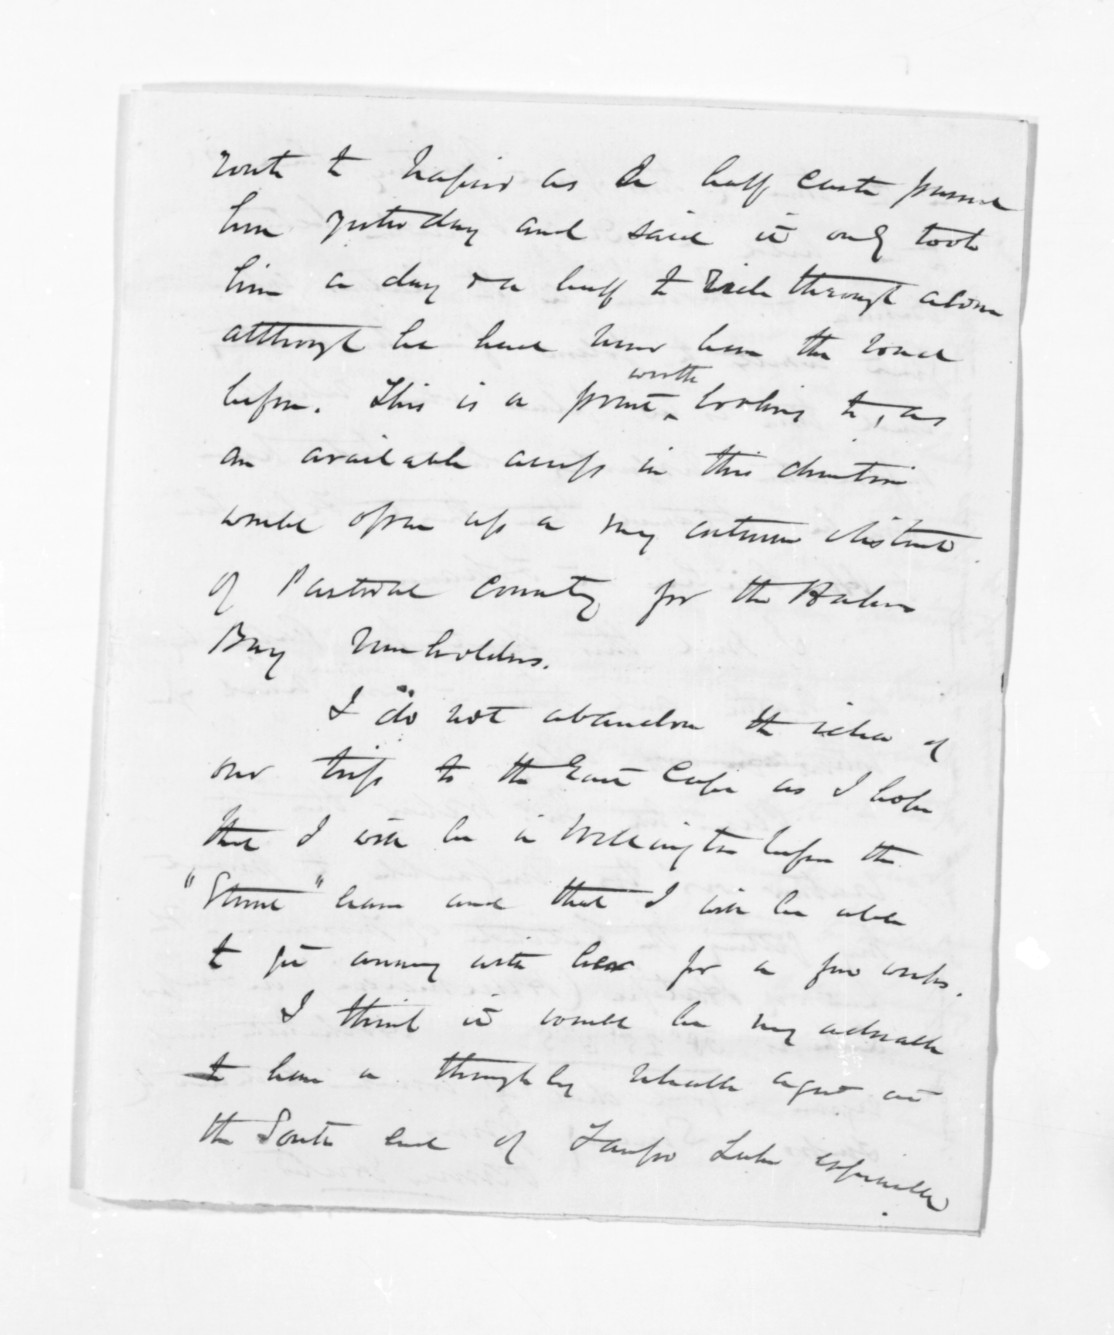 route to Napier as a half caste passed
him yesterday and said it only took
him a day & a half to ride through alone
although he had never been the road
before. This is a point worth looking to, as
an available access in this direction
would open up a very extensive district
of Pastoral Country for the Hakes
Bay runholders.
I do not abandon the idea of
our trip to the East Cape as I hope
that I will be in Wellington before the
"Sturt" leaves and that I will be able
to get away with her for a few weeks.
I think it would be very advisable
to have a thoroughly reliable agent at
the South end of Taupo Lake especially